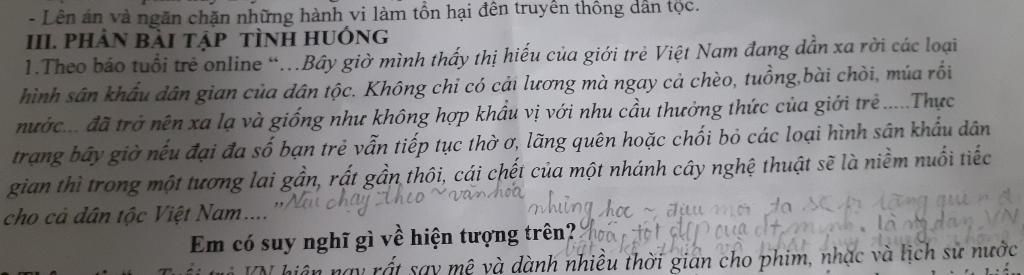 - Lên án và ngăn chặn những hành vi làm tổn hại đến truyền thống dân tộc.
III. PHẦN BÀI TẬP TÌNH HUỐNG
1.Theo báo tuổi trẻ online "…Bây giờ mình thấy thị hiếu của giới trẻ Việt Nam đang dần xa rời các loại
hình sân khấu dân gian của dân tộc. Không chỉ có cải lương mà ngay cả chèo, tuồng,bài chòi, múa rối
nước... đã trở nên xa lạ và giống như không hợp khẩu vị với nhu cầu thưởng thức của giới trẻ.....Thực
trạng bây giờ nếu đại đa số bạn trẻ vẫn tiếp tục thờ ơ, lãng quên hoặc chối bỏ các loại hình sân khấu dân
gian thì trong một tương lai gần, rất gần thôi, cái chết của một nhánh cây nghệ thuật sẽ là niềm nuối tiếc
cho cả dân tộc Việt Nam...." chạy theo ~ văn hóa
những học ~ ta sẽ bị lãng quên
Em có suy nghĩ gì về hiện tượng trên? hóa tốt đẹp của mình. là ng dân VN
VN hiện nay rất say mê và dành nhiều thời gian cho phim, nhạc và lịch sử nước